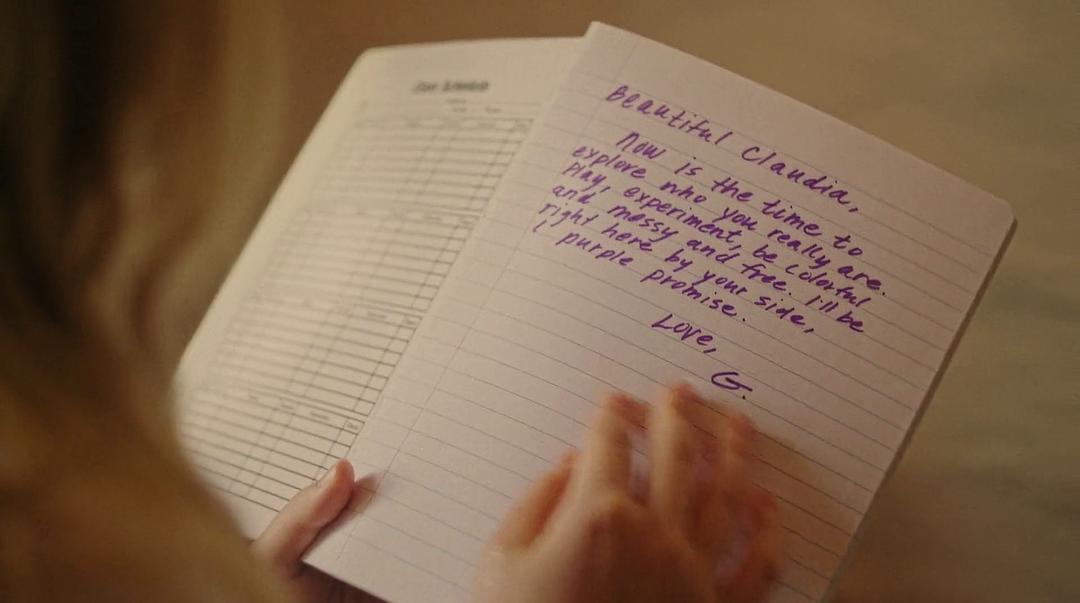 Beautiful Claudia,
Now is the time to
explore who you really are.
Play, experiment, be colorful
and messy and free. I'll be
right here by your side,
I purple promise.
Love,
G.